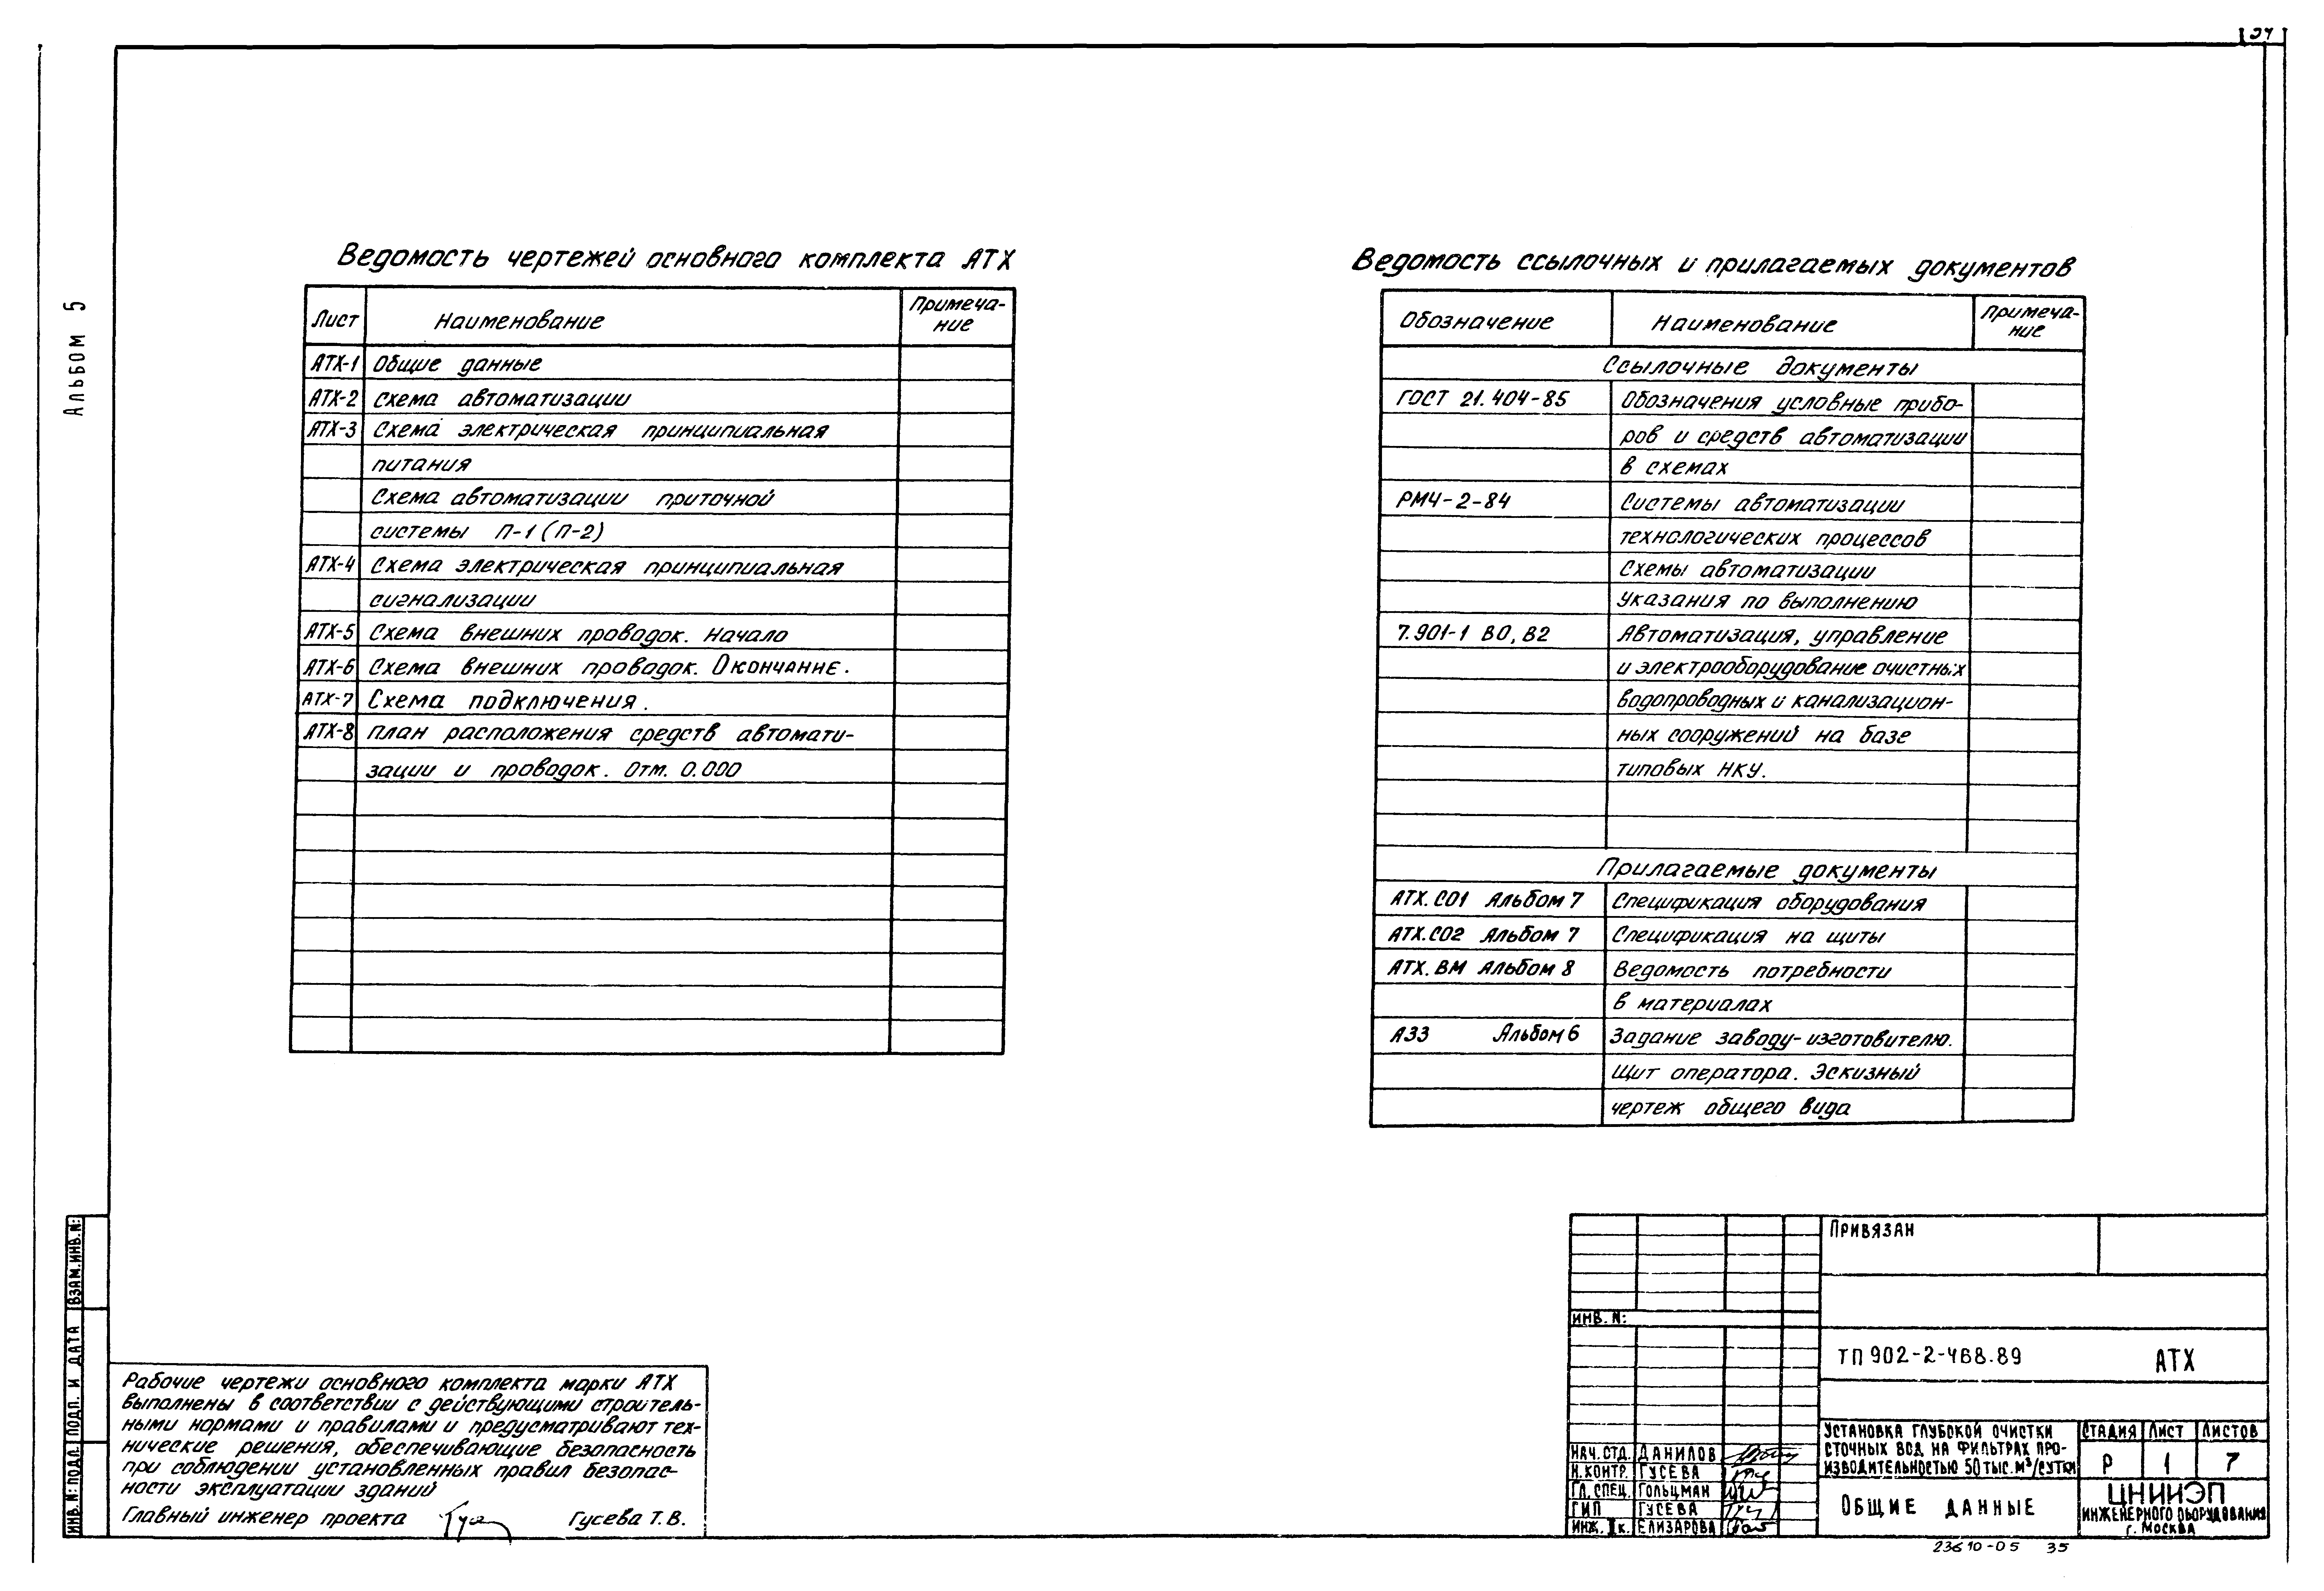 34
Альбом 5
Ведомость чертежей основного комплекта АТХ
Лист Наименование Примеча-
ние
АТХ-1 Общие данные
АТХ-2 Схема автоматизации
АТХ-3 Схема электрическая принципиальная
питания
Схема автоматизации приточной
системы П-1 (П-2)
АТХ-4 Схема электрическая принципиальная
сигнализации
АТХ-5 Схема внешних проводок. Начало
АТХ-6 Схема внешних проводок. Окончание.
АТХ-7 Схема подключения.
АТХ-8 План расположения средств автомати-
зации и проводок. Отм. 0.000
Ведомость ссылочных и прилагаемых документов
Обозначение Наименование Примеча-
ние
Ссылочные документы
ГОСТ 21.404-85 Обозначения условные прибо-
ров и средств автоматизации
в схемах
РМ4-2-84 Системы автоматизации
технологических процессов
Схемы автоматизации
Указания по выполнению
7.901-1 В0, В2 Автоматизация, управление
и электрооборудование очистных
водопроводных и канализацион-
ных сооружений на базе
типовых НКУ.
Прилагаемые документы
АТХ.СО1 Альбом 7 Спецификация оборудования
АТХ.СО2 Альбом 7 Спецификация на щиты
АТХ.ВМ Альбом 8 Ведомость потребности
в материалах
АЗЗ Альбом 6 Задание заводу-изготовителю.
Щит оператора. Эскизный
чертеж общего вида
Взам. инв. N:
Подп. и дата
Инв. N: подл.
Рабочие чертежи основного комплекта марки АТХ
выполнены в соответствии с действующими строитель-
ными нормами и правилами и предусматривают тех-
нические решения, обеспечивающие безопасность
при соблюдении установленных правил безопас-
ности эксплуатации зданий
Главный инженер проекта Гусева Т.В.
Привязан
Инв. N:
ТП 902-2-468.89 АТХ
Нач. отд. Данилов
Н. контр. Гусева
Гл. спец. Гольцман
ГИП Гусева
Инж. II к. Елизарова
Установка глубокой очистки
сточных вод на фильтрах про-
изводительностью 50 тыс. м³/сутки
Стадия Лист Листов
Р 1 7
Общие данные
ЦНИИЭП
инженерного оборудования
г. Москва
23610-05 35